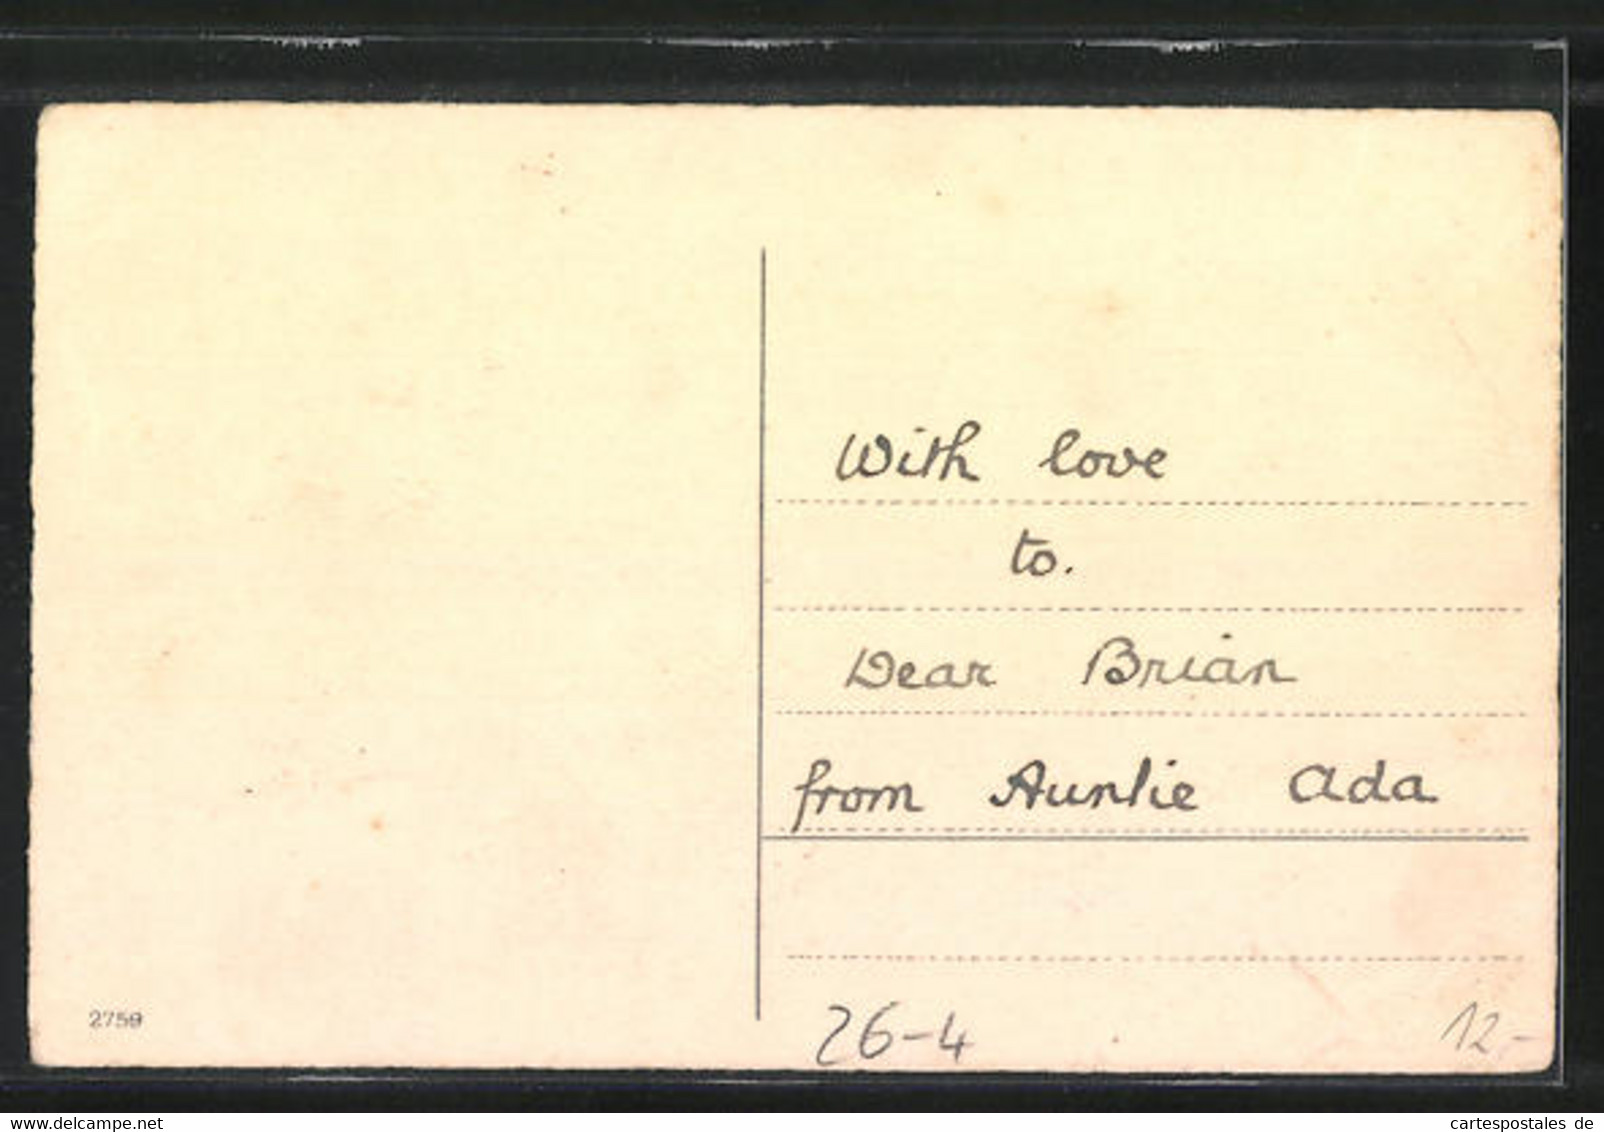 With love
to.
Dear Brian
from Auntie Ada
2759
26-4
12,-
www.delcampe.net
cartespostales de